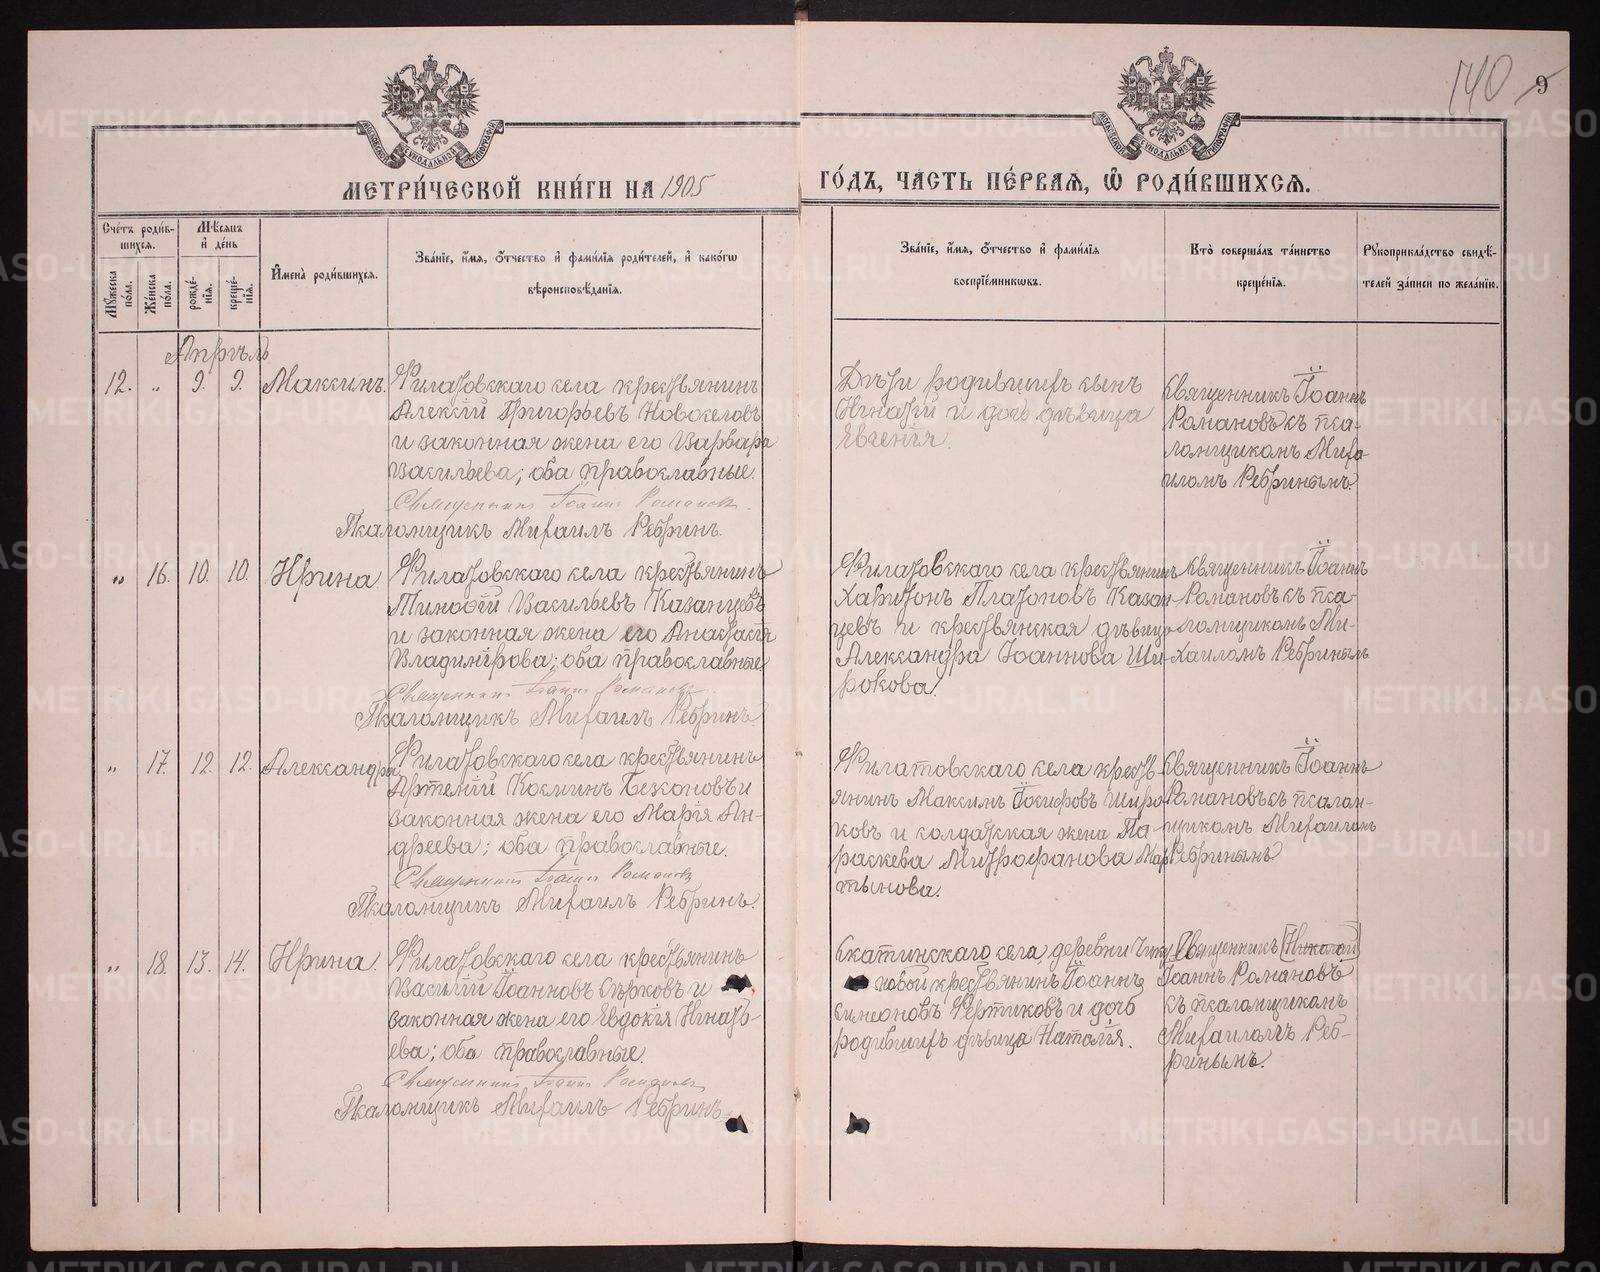 140 9
МОСКОВСКОЙ СѴНОДАЛЬНОЙ ТИПОГРАФІИ
МОСКОВСКОЙ СѴНОДАЛЬНОЙ ТИПОГРАФІИ
МЕТРИ́ЧЕСКОЙ КНИ́ГИ НА 1905 ГО́ДЪ, ЧА́СТЬ ПЕ́РВАЯ, Ѡ РОДИ́ВШИХСЯ.
Сче́тъ роди́в-
шихся.
Мꙋ́жеска по́ла.
Же́нска по́ла.
Мѣ́сяцъ
и де́нь
рожде́-
нїя.
креще́-
нїя.
И҆мена̀ роди́вшихся.
Зва́нїе, и҆́мя, ѻ҆́тчество и҆ фами́лїя роди́телей, и҆ како́гѡ
вѣроисповѣ́данїя.
Зва́нїе, и҆́мя, ѻ҆́тчество и҆ фами́лїя
воспрїе́мникѡвъ.
Кто̀ соверша́лъ та́инство
креще́нїя.
Рꙋкоприкла́дство свидѣ́-
телей за́писи по жела́нїю.
Апрѣль
12. „ 9. 9. Максимъ.
Филатовскаго села крестьянинъ
Алексій Григорьевъ Новоселовъ
и законная жена его Варвара
Васильева; оба православные.
Священникъ Іоаннъ Романовъ.
Псаломщикъ Михаилъ Ребринъ.
Дѣти родившихъ сынъ
Игнатій и дочь дѣвица
Евгенія.
Священникъ Іоаннъ
Романовъ съ пса-
ломщикомъ Миха-
иломъ Ребринымъ.
„ 16. 10. 10. Ирина
Филатовскаго села крестьянинъ
Тимофей Васильевъ Казанцевъ
и законная жена его Анастасія
Владимірова; оба православные
Священникъ Іоаннъ Романовъ
Псаломщикъ Михаилъ Ребринъ.
Филатовскаго села крестьянинъ
Харитонъ Платоновъ Казан-
цевъ и крестьянская дѣвица
Александра Іоаннова Ши-
рокова.
Священникъ Іоаннъ
Романовъ съ пса-
ломщикомъ Ми-
хаиломъ Ребринымъ
„ 17. 12. 12. Александра
Филатовскаго села крестьянинъ
Артемій Косминъ Безконовъ и
законная жена его Марія Ан-
дреева; оба православные.
Священникъ Іоаннъ Романовъ
Псаломщикъ Михаилъ Ребринъ.
Филатовскаго села кресть-
янинъ Максимъ Іосифовъ Широ-
ковъ и солдатская жена Па-
раскева Митрофанова Мар-
тынова.
Священникъ Іоаннъ
Романовъ съ псалом-
щикомъ Михаиломъ
Ребринымъ
„ 18. 13. 14. Ирина.
Филатовскаго села крестьянинъ
Василій Іоанновъ Сѣрковъ и
законная жена его Евдокія Игнать-
ева; оба православные.
Священникъ Іоаннъ Романовъ
Псаломщикъ Михаилъ Ребринъ.
Скатинскаго села деревни
новой крестьянинъ Іоаннъ
Симеоновъ Фертиковъ и дочь
родившихъ дѣвица Наталія.
Священникъ [Николай]
Іоаннъ Романовъ
съ псаломщикомъ
Михаиломъ Реб-
ринымъ.
METRIKI.GASO-URAL.RU